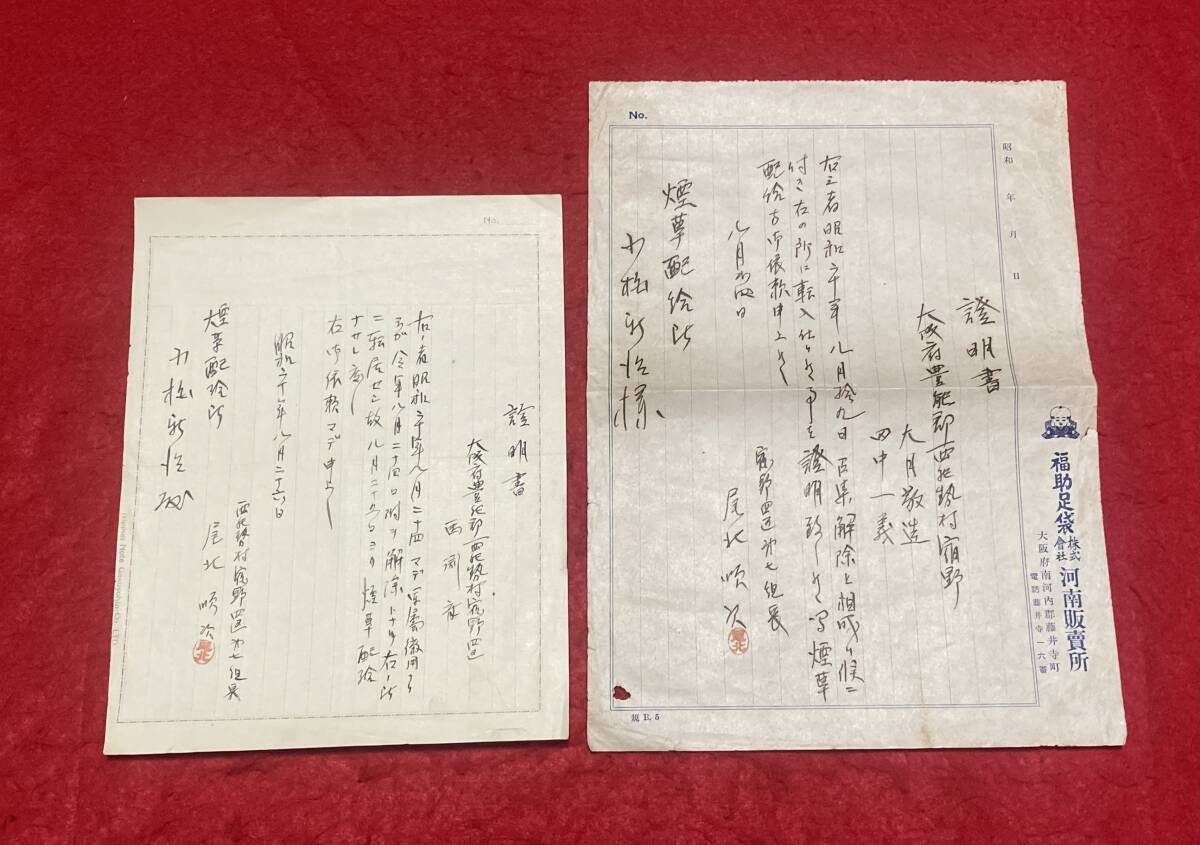 No.
昭和 年 月 日
證明書
大阪府豊能郡西能勢村宿野
大月敬造
田中一義
右之者昭和二十年八月拾九日召集解除と相成り候ニ
付き左の所に転入仕り候事を證明致し候間煙草
配給方御依頼申上候
八月廿四日
宿野四区第七組長
尾北順次
煙草配給所
小松新治様
福助足袋株式會社 河南販賣所
大阪府南河内郡藤井寺町
電話藤井寺一六番
規B.5
No.
證明書
大阪府豊能郡西能勢村宿野四区
右ノ者昭和二十年八月二十四マデ軍属徴用
今年八月二十四日附ヲ解除トナリ右ノ所
ニ転居セシ故八月二十 ヨリ煙草配給
ナサレ度
右御依頼マデ申上
昭和二十年八月二十六日
西能勢村宿野四区第七組長
尾北順次
煙草配給所
小松新治殿